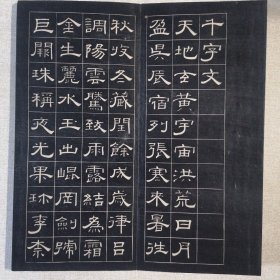 千字文
天地玄黃宇宙洪荒日月
盈昃辰宿列張寒來暑往
秋收冬藏閏餘成歲律呂
調陽雲騰致雨露結為霜
金生麗水玉出崐岡劍號
巨闕珠稱夜光果珍李柰